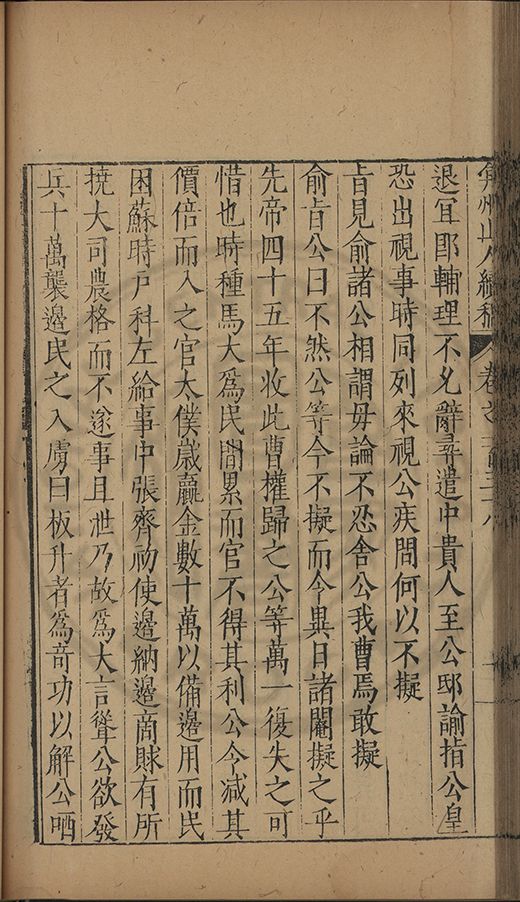 弇州山人續稿 卷之一百三十八
退宜即輔理不允辭尋遣中貴人至公邸諭指公皇
恐出視事時同列來視公疾問何以不擬
旨見俞諸公相謂毋論不忍舍公我曹焉敢擬
俞旨公曰不然公等今不擬而令異日諸閹擬之乎
先帝四十五年收此曹權歸之公等萬一復失之可
惜也時種馬大爲民間累而官不得其利公令減其
價倍而入之官太僕歲羸金數十萬以備邊用而民
困蘇時戸科左給事中張齊初使邊納邊商賕有所
撓大司農格而不遂事且泄乃故爲大言聳公欲發
兵十萬襲邊民之入虜曰板升者爲奇功以解公哂